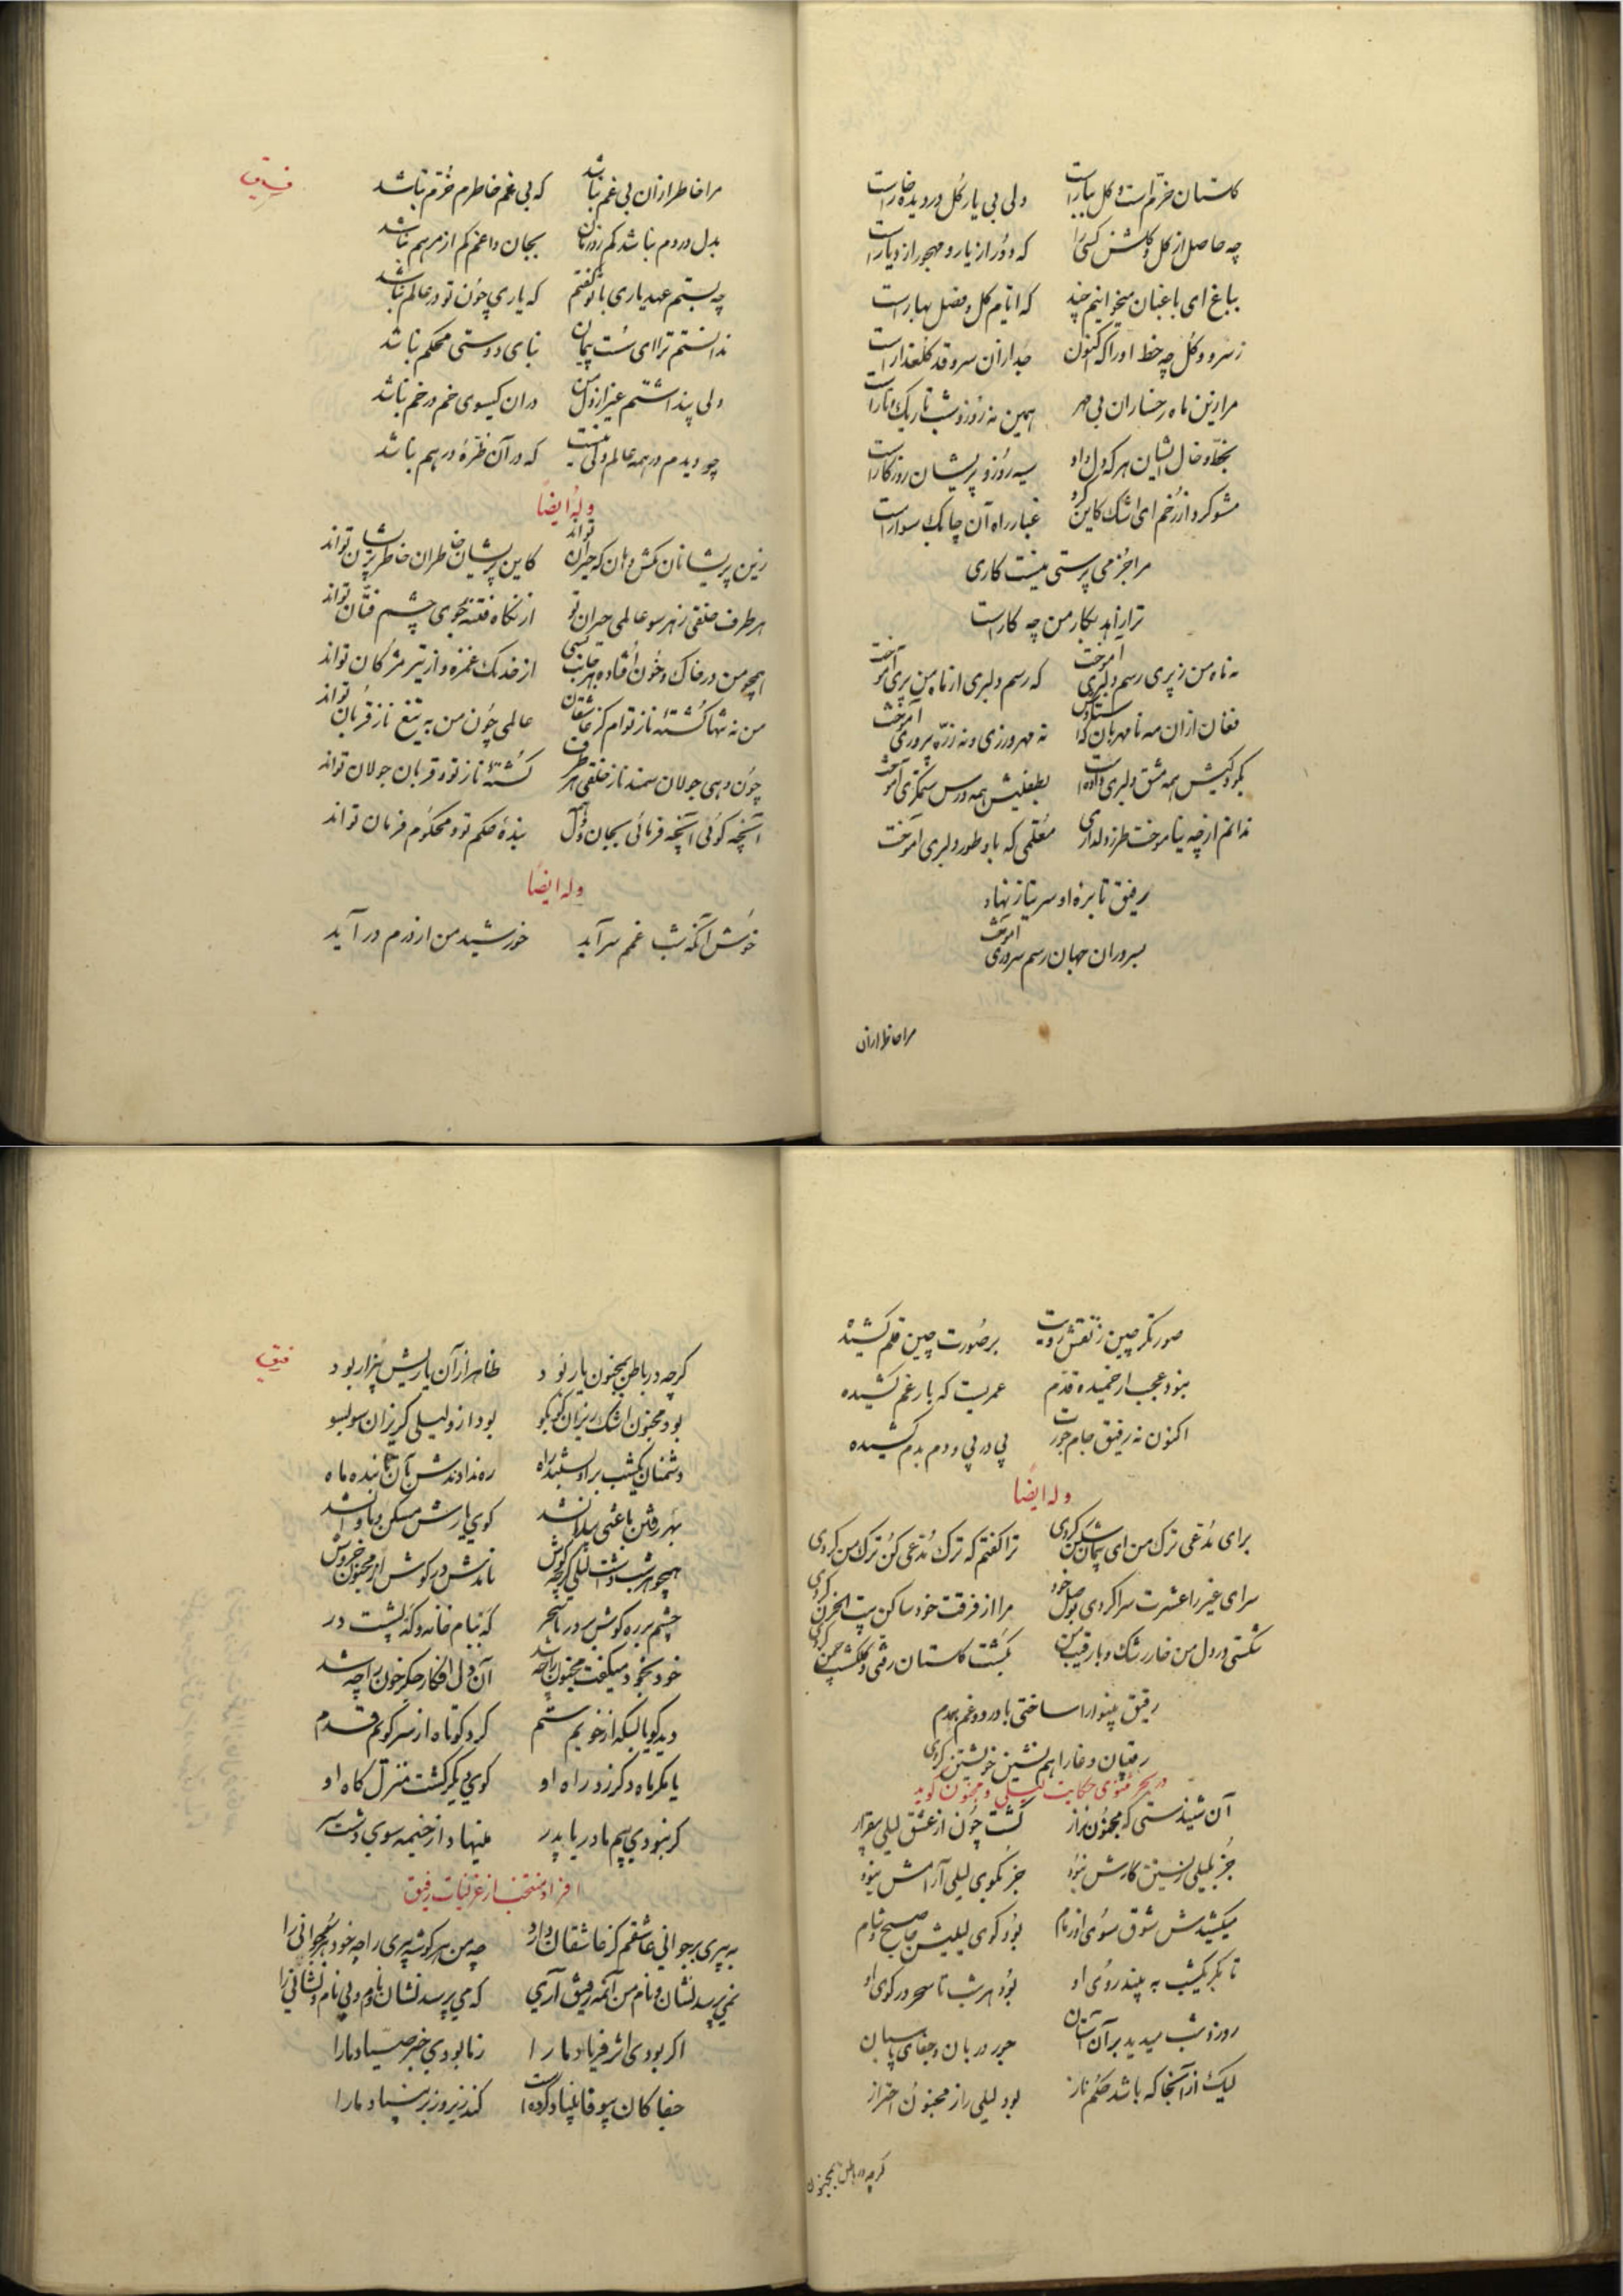 گلستان خرّم است و گل ببار است ولی بی یار گل در دیده خار است
چه حاصل از گل و گلشن کسی را که دور از یار و مهجور از دیار است
بباغ ای باغبان میخوانیم چند که ایّام گل و فصل بهار است
ز سرو و گل چه حظ او را که اکنون جدا از آن سرو قد گلعذار است
مرا زین ماه رخساران بی مهر همین نه روز و شب تاریک و تار است
بخطّ و خال ایشان هر که دل داد سیه روز و پریشان روزگار است
مشو گرد از رخم ای اشک کاین گرد غبار راه آن چابک سوار است
مرا جز می پرستی نیست کاری
ترا زاهد بکار من چه کار است
نه ماه من ز پری رسم دلبری آموخت که رسم دلبری از ماه من پری آموخت
فغان از آن مه نامهربان که استادش نه مهرورزی و نه ذرّه پروری آموخت
بکودکیش همه مشق دلبری داده است بطفلیش همه درس ستمگری آموخت
ندانم از چه نیاموخت طرز دلداری معلّمی که باو طور دلبری آموخت
رفیق تا بره او سر نیاز نهاد
بسروران جهان رسم سروری آموخت
مرا خاطر از آن
رفیق
مرا خاطر از آن بی غم نباشد که بی غم خاطرم خرّم نباشد
بدل دردم نباشد کم ز درمان بجان داغم کم از مرهم نباشد
چه بستم عهد یاری با تو گفتم که یاری چون تو در عالم نباشد
ندانستم ترا ای سُست پیمان بنای دوستی محکم نباشد
ولی پنداشتم غیر از دل من در آن گیسوی خم در خم نباشد
چو دیدم در همه عالم دلی نیست که در آن طرّهٔ درهم نباشد
وله ایضاً
زین پریشانان مکش دامان که حیران تواند کاین پریشان خاطران خاطر پریشان تواند
هر طرف خلقی ز هر سو عالمی حیران تو از نگاه فتنه جوی چشم فتّان تواند
همچو من در خاک و خون افتاده هر جانب بسی از خدنک غمزه و از تیر مژکان تواند
من نه تنها کُشتهٔ ناز توام کز عاشقان عالمی چون من به تیغ ناز قربان تواند
چون دهی جولان سمند ناز خلقی هر طرف کُشتهٔ ناز تو و قربان جولان تواند
آنچه گوئی آنچه فرمائی بجان و دل همه بندهٔ حکم تو و محکوم فرمان تواند
وله ایضاً
خوش آنکه شب غمم سر آید خورشید من از درم در آید
صورتگر چین ز نقش رویت بر صورت چین قلم کشیده
نبود عجب ار خمیده قدّم عمریست که بار غم کشیده
اکنون نه رفیق جام جورت پی در پی و دم بدم کشیده
وله ایضاً
برای مدّعی ترک من ای پیمان شکن کردی ترا گفتم که ترک مدّعی کن ترک من کردی
سرای غیر را عشرت سرا کردی بوصل خود مرا از فرقت خود ساکن بیت الحزن کردی
شکستی در دل من خار رشک و با رقیب من بگشت گلستان رفتی و گلگشت چمن کردی
رفیق بینوا را ساختی با درد و غم همدم
رقیبان دغا را هم نشین خویشتن کردی
در بحر مثنوی حکایت لیلی و مجنون گوید
آن شنیدستی که مجنون نزار گشت چون از عشق لیلی بیقرار
جز بلیلی زیستن کارش نبود جز بکوی لیلی آرامش نبود
میکشیدش شوق سوی او زمام بود کوی لیلیش جا صبح و شام
تا مگر یکشب به بیند روی او بود هر شب تا سحر در کوی او
روز و شب میدید بر آن آستان جور دربان و جفای پاسبان
لیک از آنجا که باشد حکم ناز بود لیلی را ز مجنون احتراز
گرچه در باطن بمجنون
رفیق
گرچه در باطن بمجنون یار بود ظاهر از آن یاریش بیزار بود
بود مجنون اشک ریزان کو بکو بود از و لیلی گریزان سو بسو
دشمنان یکشب بر او بستند راه ره ندادندش بآن تابنده ماه
بهر رفتن باعثی پیدا نشد کوی یارش مسکن و ماوا نشد
همچو هر شب داشت لیلی گرچه گوش نامدش در گوش از مجنون خروش
چشم بر ره گوش بر در تا سحر گه ببام خانه و گه پشت در
خود بخود میگفت مجنون را چه شد آن دل افکار جگر خون را چه شد
دید گویا بسکه از خویم ستم کرد کوتاه از سر کویم قدم
یا مگر ماه دگر زد راه او کوی دیگر گشت منزل گاه او
گر نبودی بیم مادر یا پدر مینهاد از خیمه سوی دشت سر
افراد منتخب از غزلیات رفیق
به پیری بر جوانی عاشقم کز عاشقان دارد چه من هر گوشه پیری را چه خود هر سو جوانی را
نمی پرسد نشان و نام من آن مه رفیق آری که می پرسد نشان و نام بی نام و نشانی را
اگر بودی اثر فریاد ما را ز ما بودی خبر صیّاد ما را
جفا کان بیوفا بنیاد کرده است کند زیر و زبر بنیاد ما را